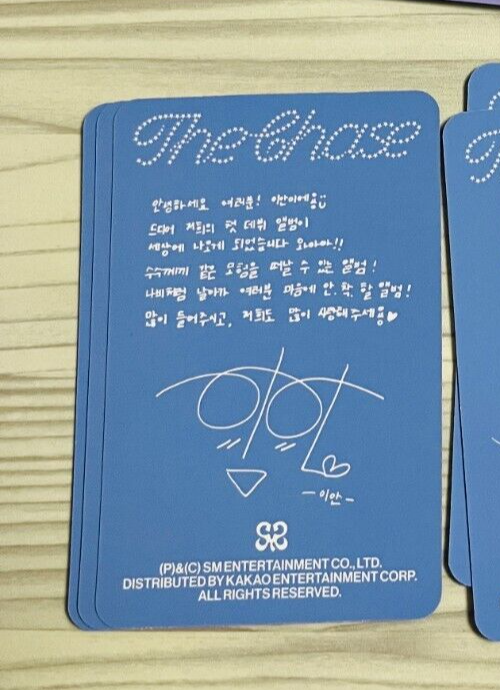 The Chase
안녕하세요 여러분! 이안이에용
드디어 저희의 첫 데뷔 앨범이
세상에 나오게 되었습니다 와아아!!
수수께끼 같은 모험을 떠날 수 있는 앨범!
나비처럼 날아가 여러분 마음에 안.착.할 앨범!
많이 들어주시고, 저희도 많이 사랑해주세용♥
이안
-이안-
(P)&(C) SM ENTERTAINMENT CO., LTD.
DISTRIBUTED BY KAKAO ENTERTAINMENT CORP.
ALL RIGHTS RESERVED.